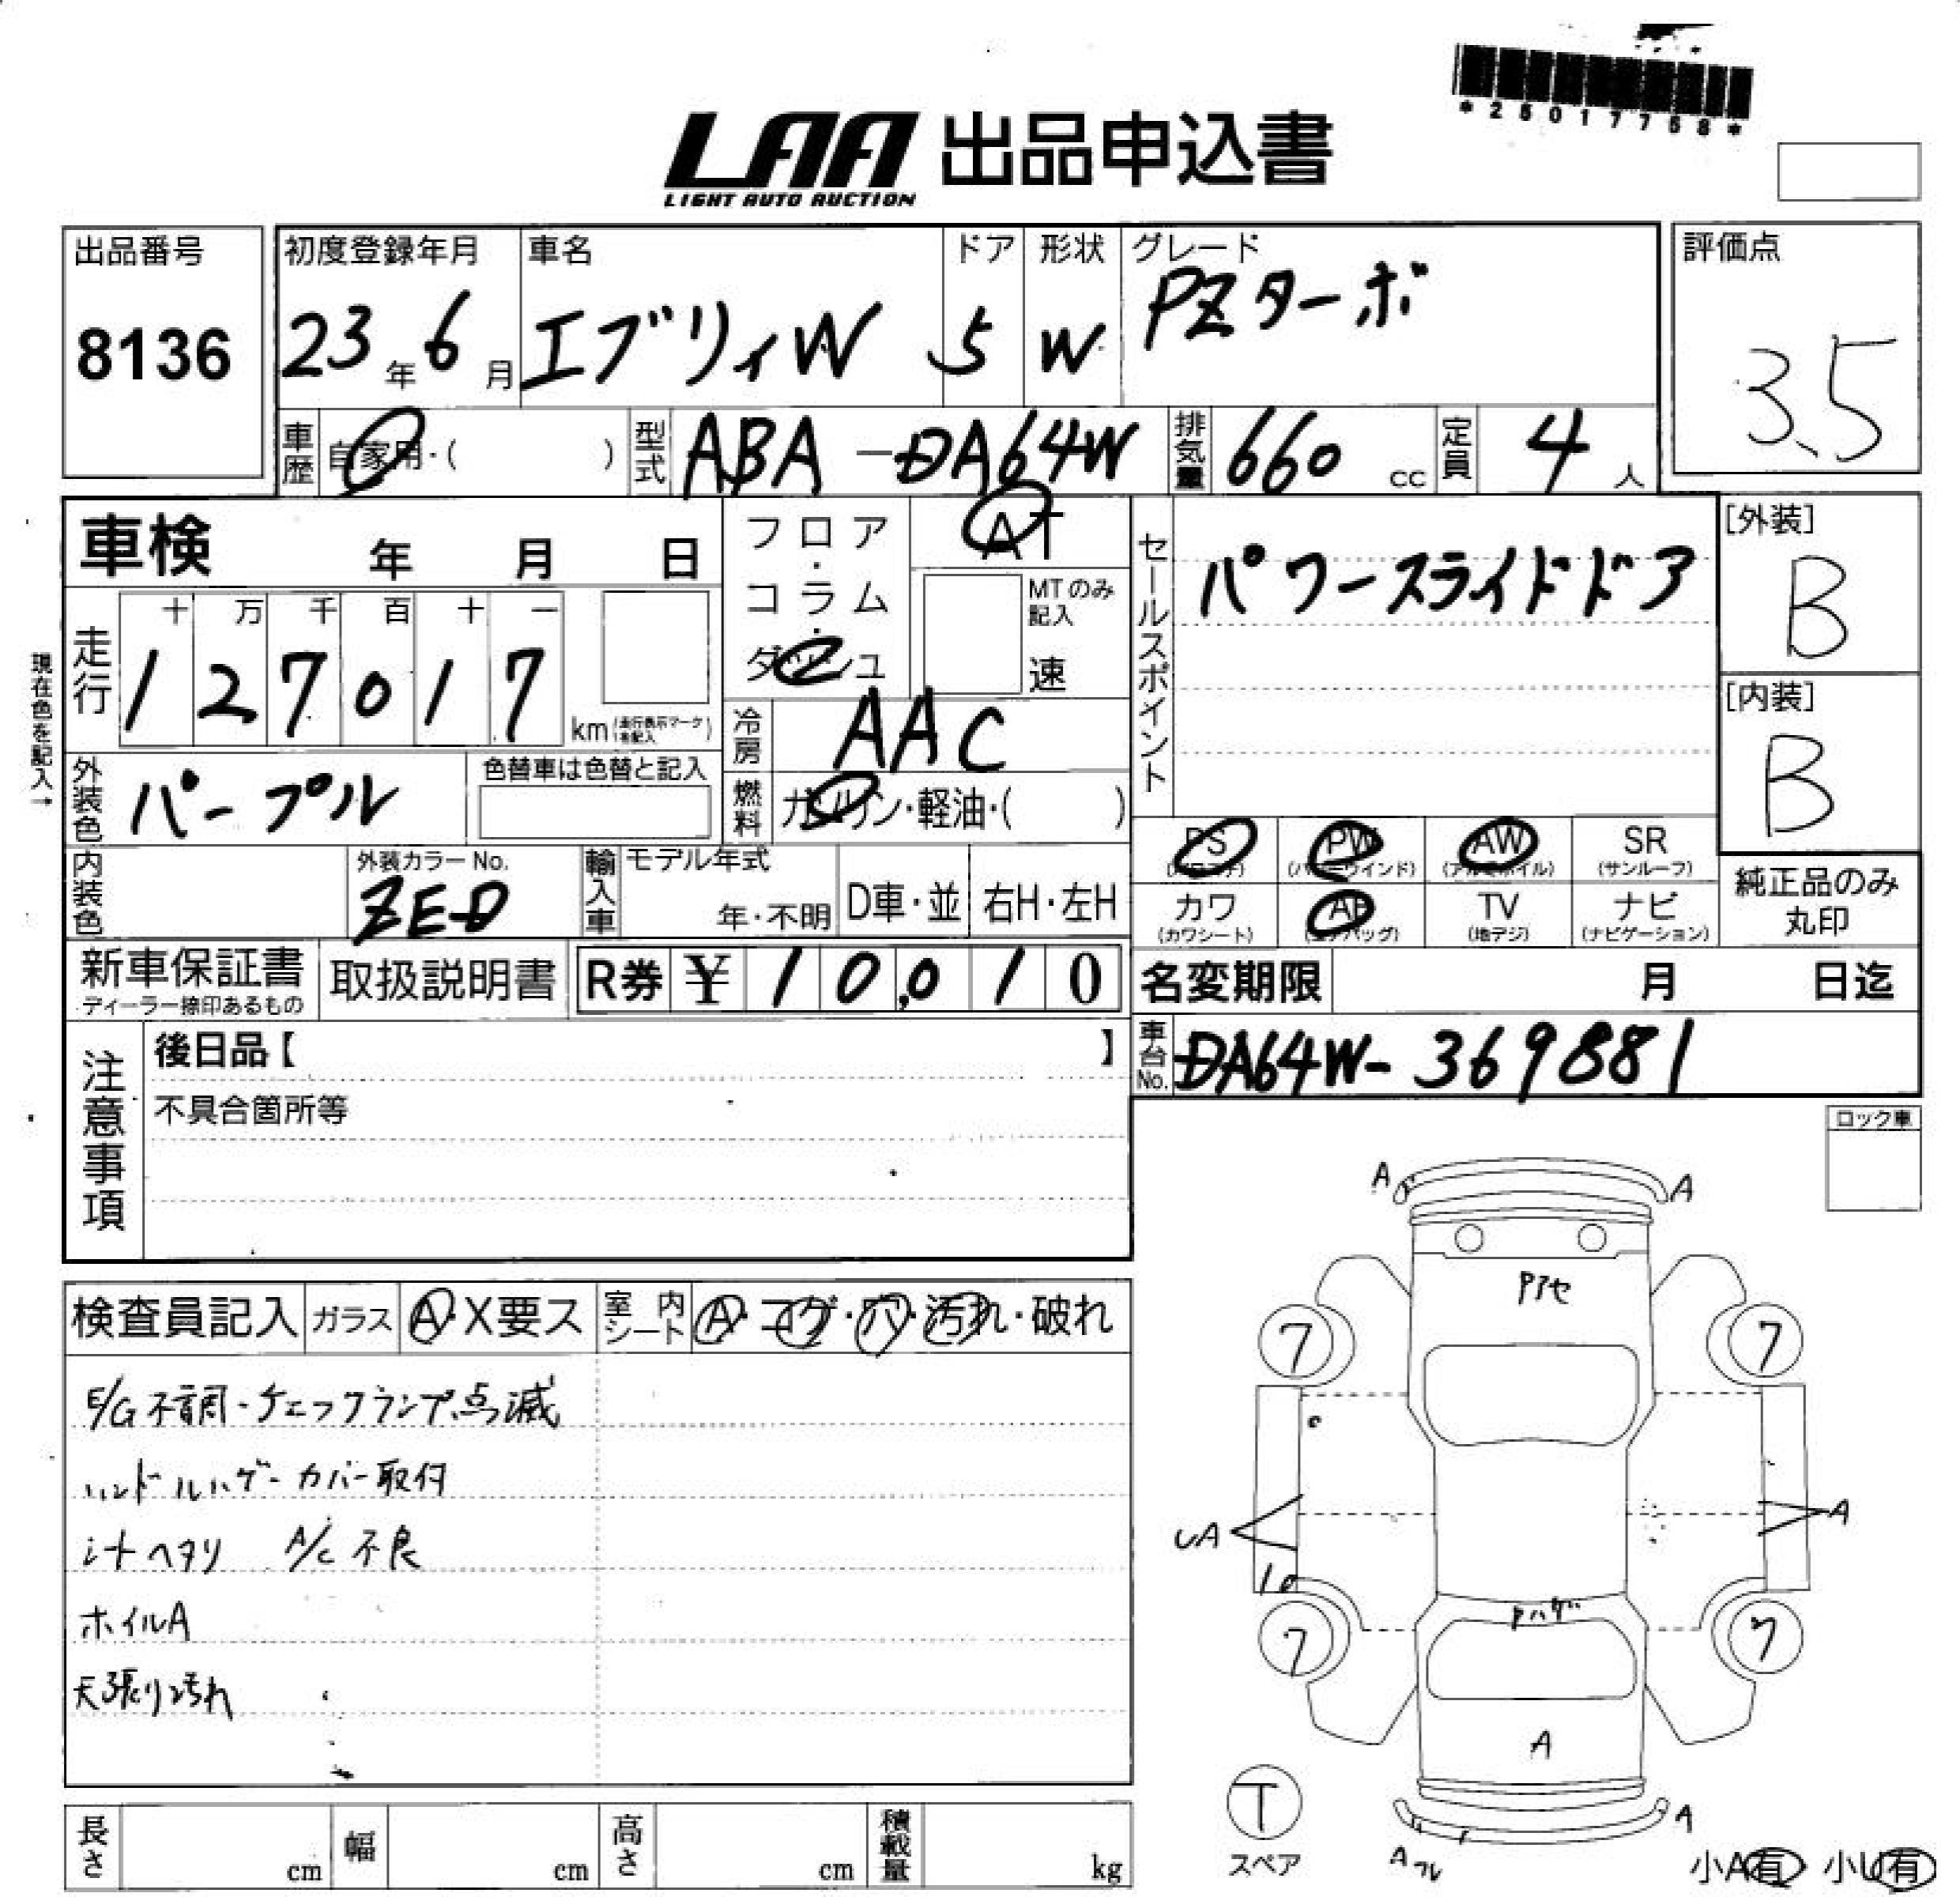 *25017758*
LAA 出品申込書
LIGHT AUTO AUCTION
出品番号
8136
初度登録年月
23年6月
車名
エブリィW
ドア
5
形状
W
グレード
PZターボ
評価点
3.5
車歴
自家用・( )
型式
ABA-DA64W
排気量
660 cc
定員
4人
車検 年 月 日
フロア・コラム・ダッシュ
AT
MTのみ記入
速
セールスポイント
パワースライドドア
[外装]
B
[内装]
B
現在色を記入→
走行
十万千百十一
127017
km(走行表示マーク1各記入)
冷房
AAC
外装色
パープル
色替車は色替と記入
燃料
ガソリン・軽油・( )
PS PW AW SR
(パワステ) (パワーウインド) (アルミホイル) (サンルーフ)
カワ AB TV ナビ
(カワシート) (エアバッグ) (地デジ) (ナビゲーション)
純正品のみ丸印
内装色
外装カラーNo.
ZED
輸入車
モデル年式
年・不明
D車・並
右H・左H
新車保証書
ディーラー捺印あるもの
取扱説明書
R券 ¥10,010
名変期限 月 日迄
車台No.
DA64W-369881
注意事項
後日品【 】
不具合箇所等
ロック車
検査員記入
ガラス A・X要ス
室内シート A・コゲ・穴・汚れ・破れ
E/G不調・チェックランプ点滅
ハンドルハゲ-カバー取付
シートヘタリ A/C不良
ホイルA
天張り汚れ
A A
Pアセ
7 7
UA A
Pハゲ
7 7
A
T
スペア
A
A
小A有 小U有
長さ cm
幅 cm
高さ cm
積載量 kg